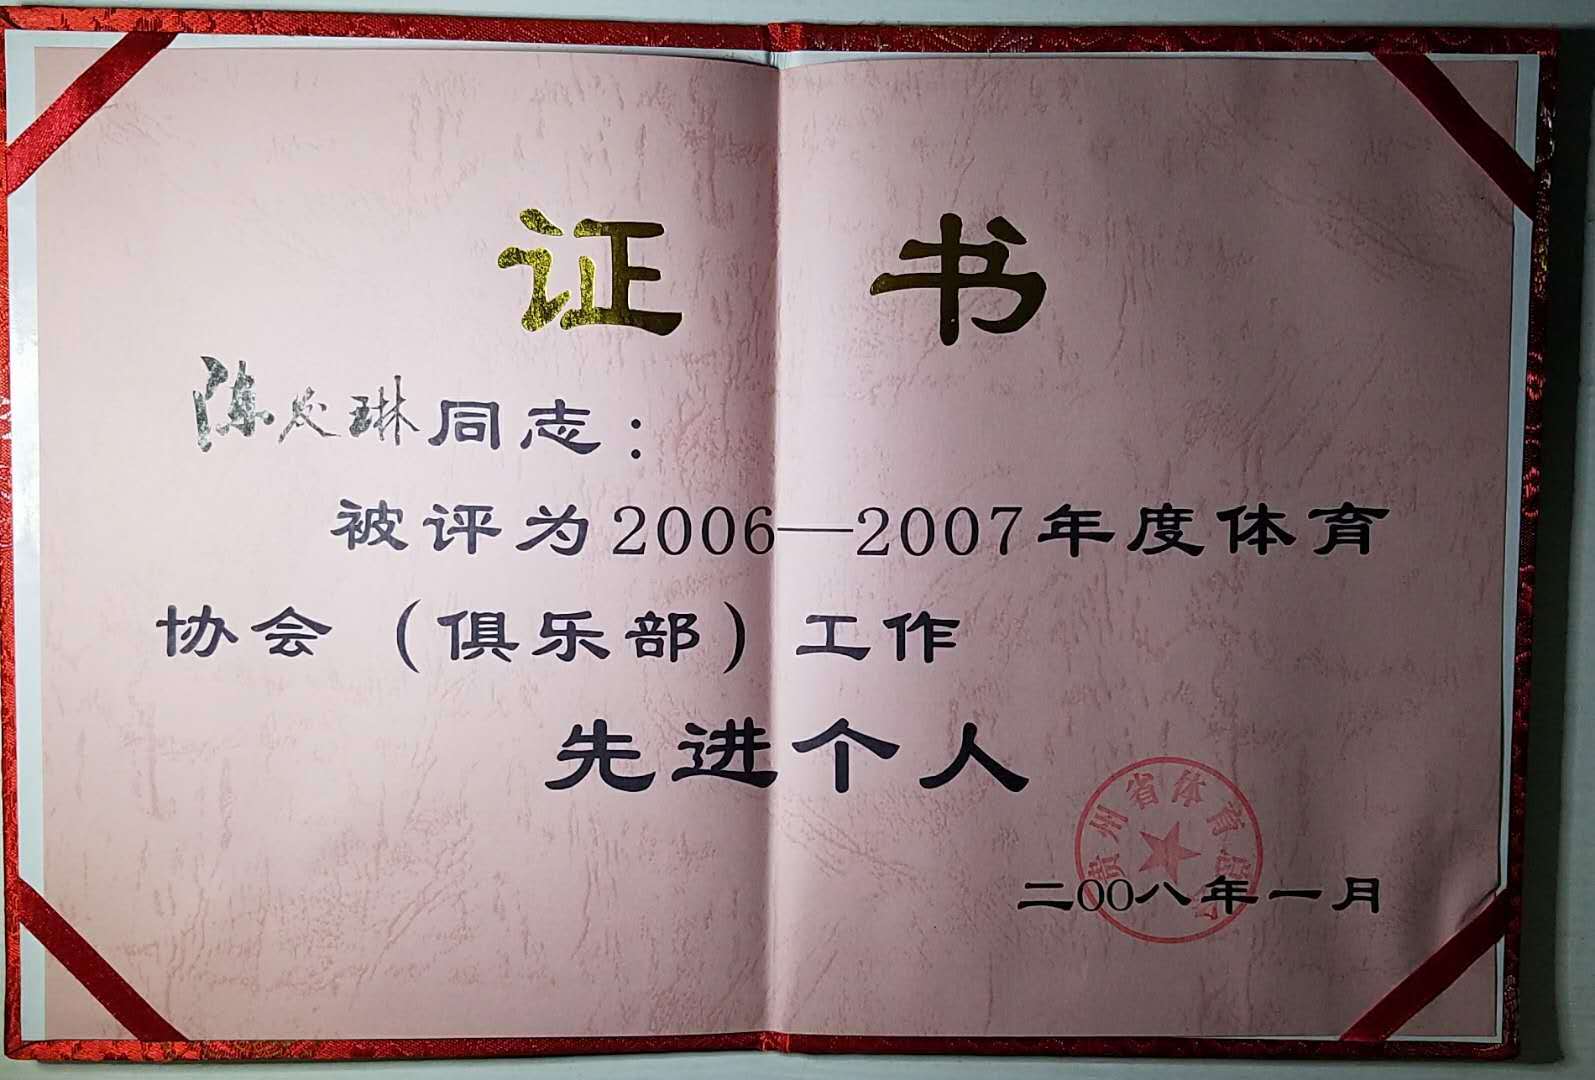 证书
陈 琳同志：
被评为2006—2007年度体育
协会（俱乐部）工作
先进个人
贵州省体育
二00八年一月